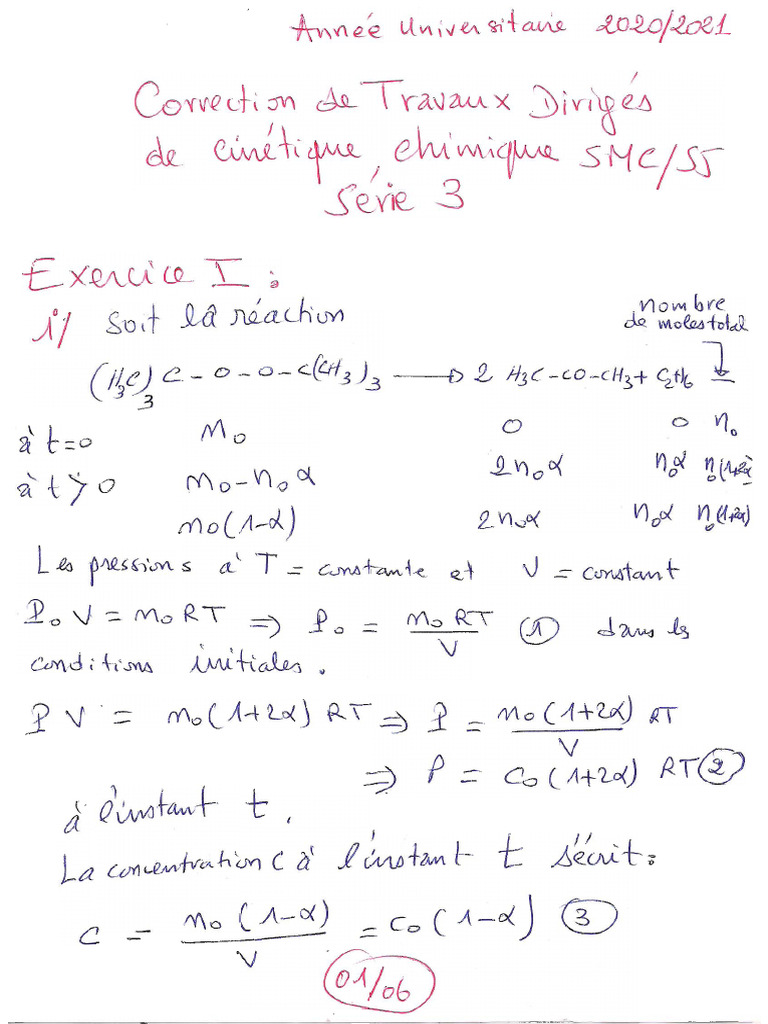 Année Universitaire 2020/2021
Correction de Travaux Dirigés
de cinétique chimique SMC/S5
Série 3
Exercice I :
1°/ Soit la réaction
nombre
de moles total
(H₃C)₃C-O-O-C(CH₃)₃ → 2 H₃C-CO-CH₃ + C₂H₆
à t=0 n₀ 0 0 n₀
à t>0 n₀-n₀α 2n₀α n₀α n₀(1+2α)
n₀(1-α) 2n₀α n₀α n₀(1+2α)
Les pressions à T = constante et V = constant
P₀V = n₀RT ⇒ P₀ = n₀RT/V (1) dans les
conditions initiales.
PV = n₀(1+2α) RT ⇒ P = n₀(1+2α)/V RT
⇒ P = C₀(1+2α) RT (2)
à l'instant t.
La concentration C à l'instant t s'écrit :
C = n₀(1-α)/V = C₀(1-α) (3)
01/06